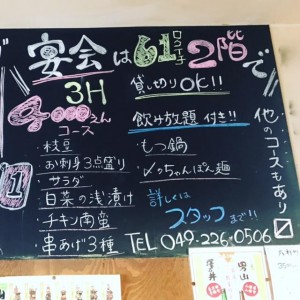 宴会は61 2階で
ロクイチ
貸し切りOK!!
3H
4000えん
コース
飲み放題 付き!!
他のコースもあり
・枝豆
・お刺身3点盛り
・サラダ
・白菜の浅漬け
・チキン南蛮
・串あげ3種
・もつ鍋
・〆のちゃんぽん麺
詳しくは
スタッフまで!!
TEL 049-226-0506
1